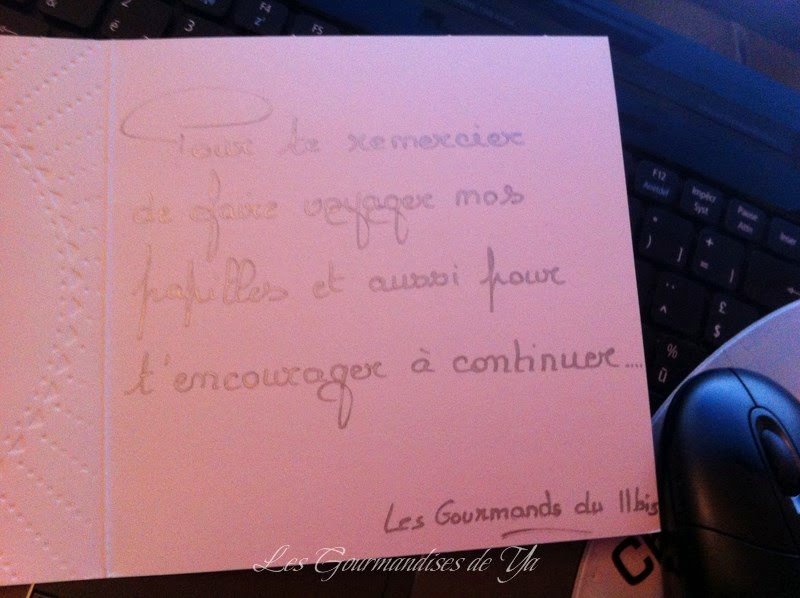 Pour te remercier
de faire voyager nos
papilles et aussi pour
t'encourager à continuer....
Les Gourmands du 11bis
Les Gourmandises de Ya
F12
Impécr
Syst
Pause
Attn
Inser